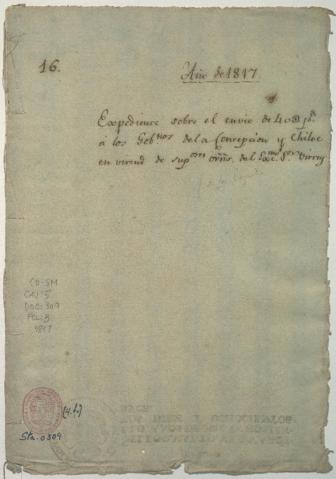 16.
Año de 1817.
Expediente sobre el envio de 40@ ps.
á los Gobnos de la Concepcion y Chiloe
en virtud de supres orns. del Excmo. Sor Virrey
CO-SM
CAJ: 5
DOC: 309
FOL: 3
1817
(4.f.)
Sta. 0309